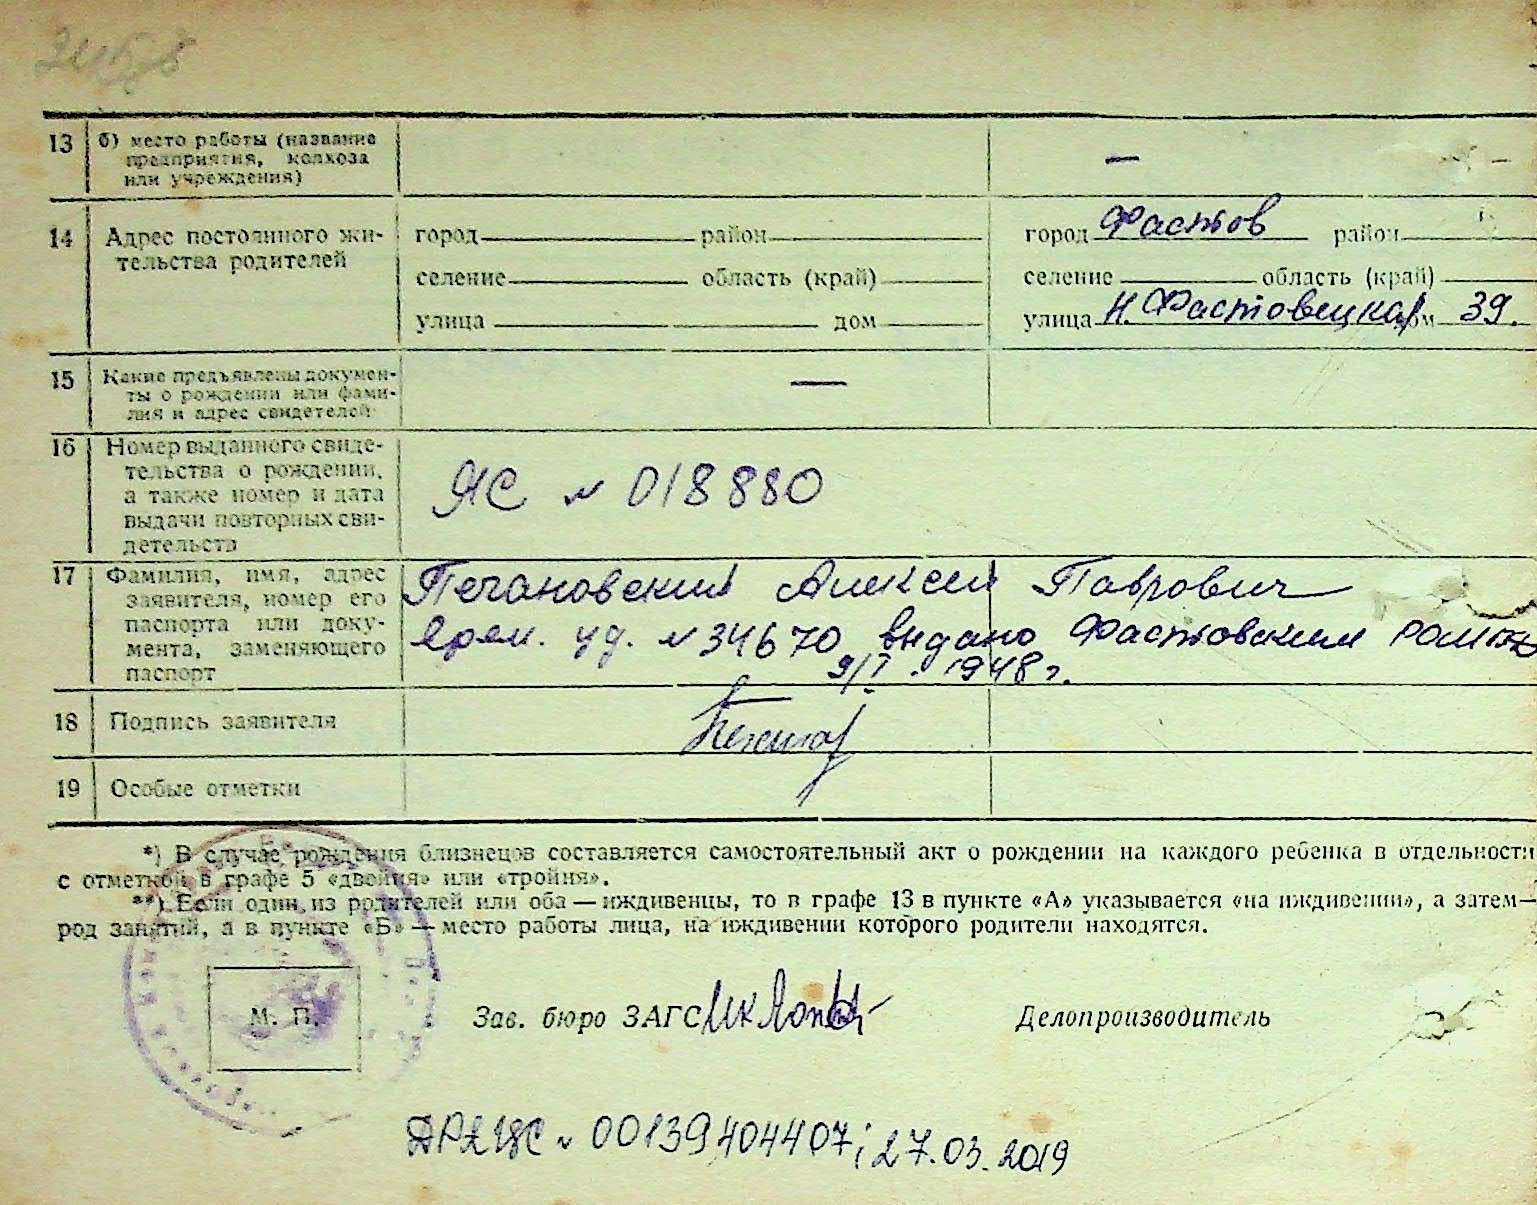 13 б) место работы (название
предприятия, колхоза
или учреждения)
—
14 Адрес постоянного жи-
тельства родителей
город район
селение область (край)
улица дом
город Фастов район
селение область (край)
улица Н. Фастовецкая дом 39.
15 Какие предъявлены докумен-
ты о рождении или фами-
лия и адрес свидетелей
—
16 Номер выданного свиде-
тельства о рождении,
а также номер и дата
выдачи повторных сви-
детельств
ЯС № 018880
17 Фамилия, имя, адрес
заявителя, номер его
паспорта или доку-
мента, заменяющего
паспорт
Печановский Алексей
врем. уд. № 34670 выдано Фастовским
9/I. 1948 г.
18 Подпись заявителя
19 Особые отметки
*) В случае рождения близнецов составляется самостоятельный акт о рождении на каждого ребенка в отдельности
с отметкой в графе 5 «двойня» или «тройня».
**) Если один из родителей или оба — иждивенцы, то в графе 13 в пункте «А» указывается «на иждивении», а затем —
род занятий, а в пункте «Б» — место работы лица, на иждивении которого родители находятся.
М. П.
Зав. бюро ЗАГС
Делопроизводитель
ДРАЦС № 00139404407; 27.03.2019